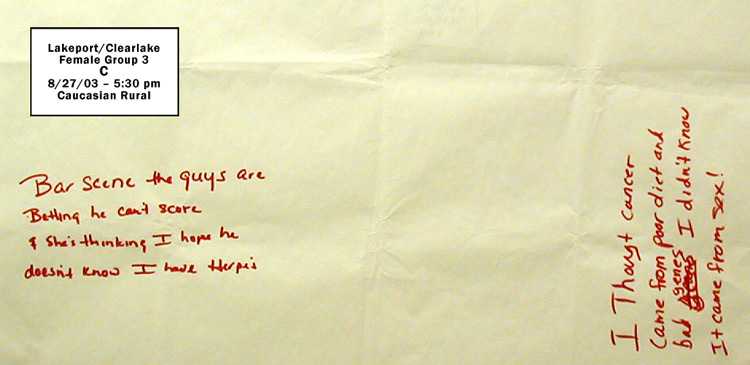 Lakeport/Clearlake
Female Group 3
C
8/27/03 – 5:30 pm
Caucasian Rural
Bar scene the guys are
Betting he can't score
& She's thinking I hope he
doesn't know I have Herpes
I Thought cancer
Came from poor diet and
bad genes I didn't know
It came from sex!